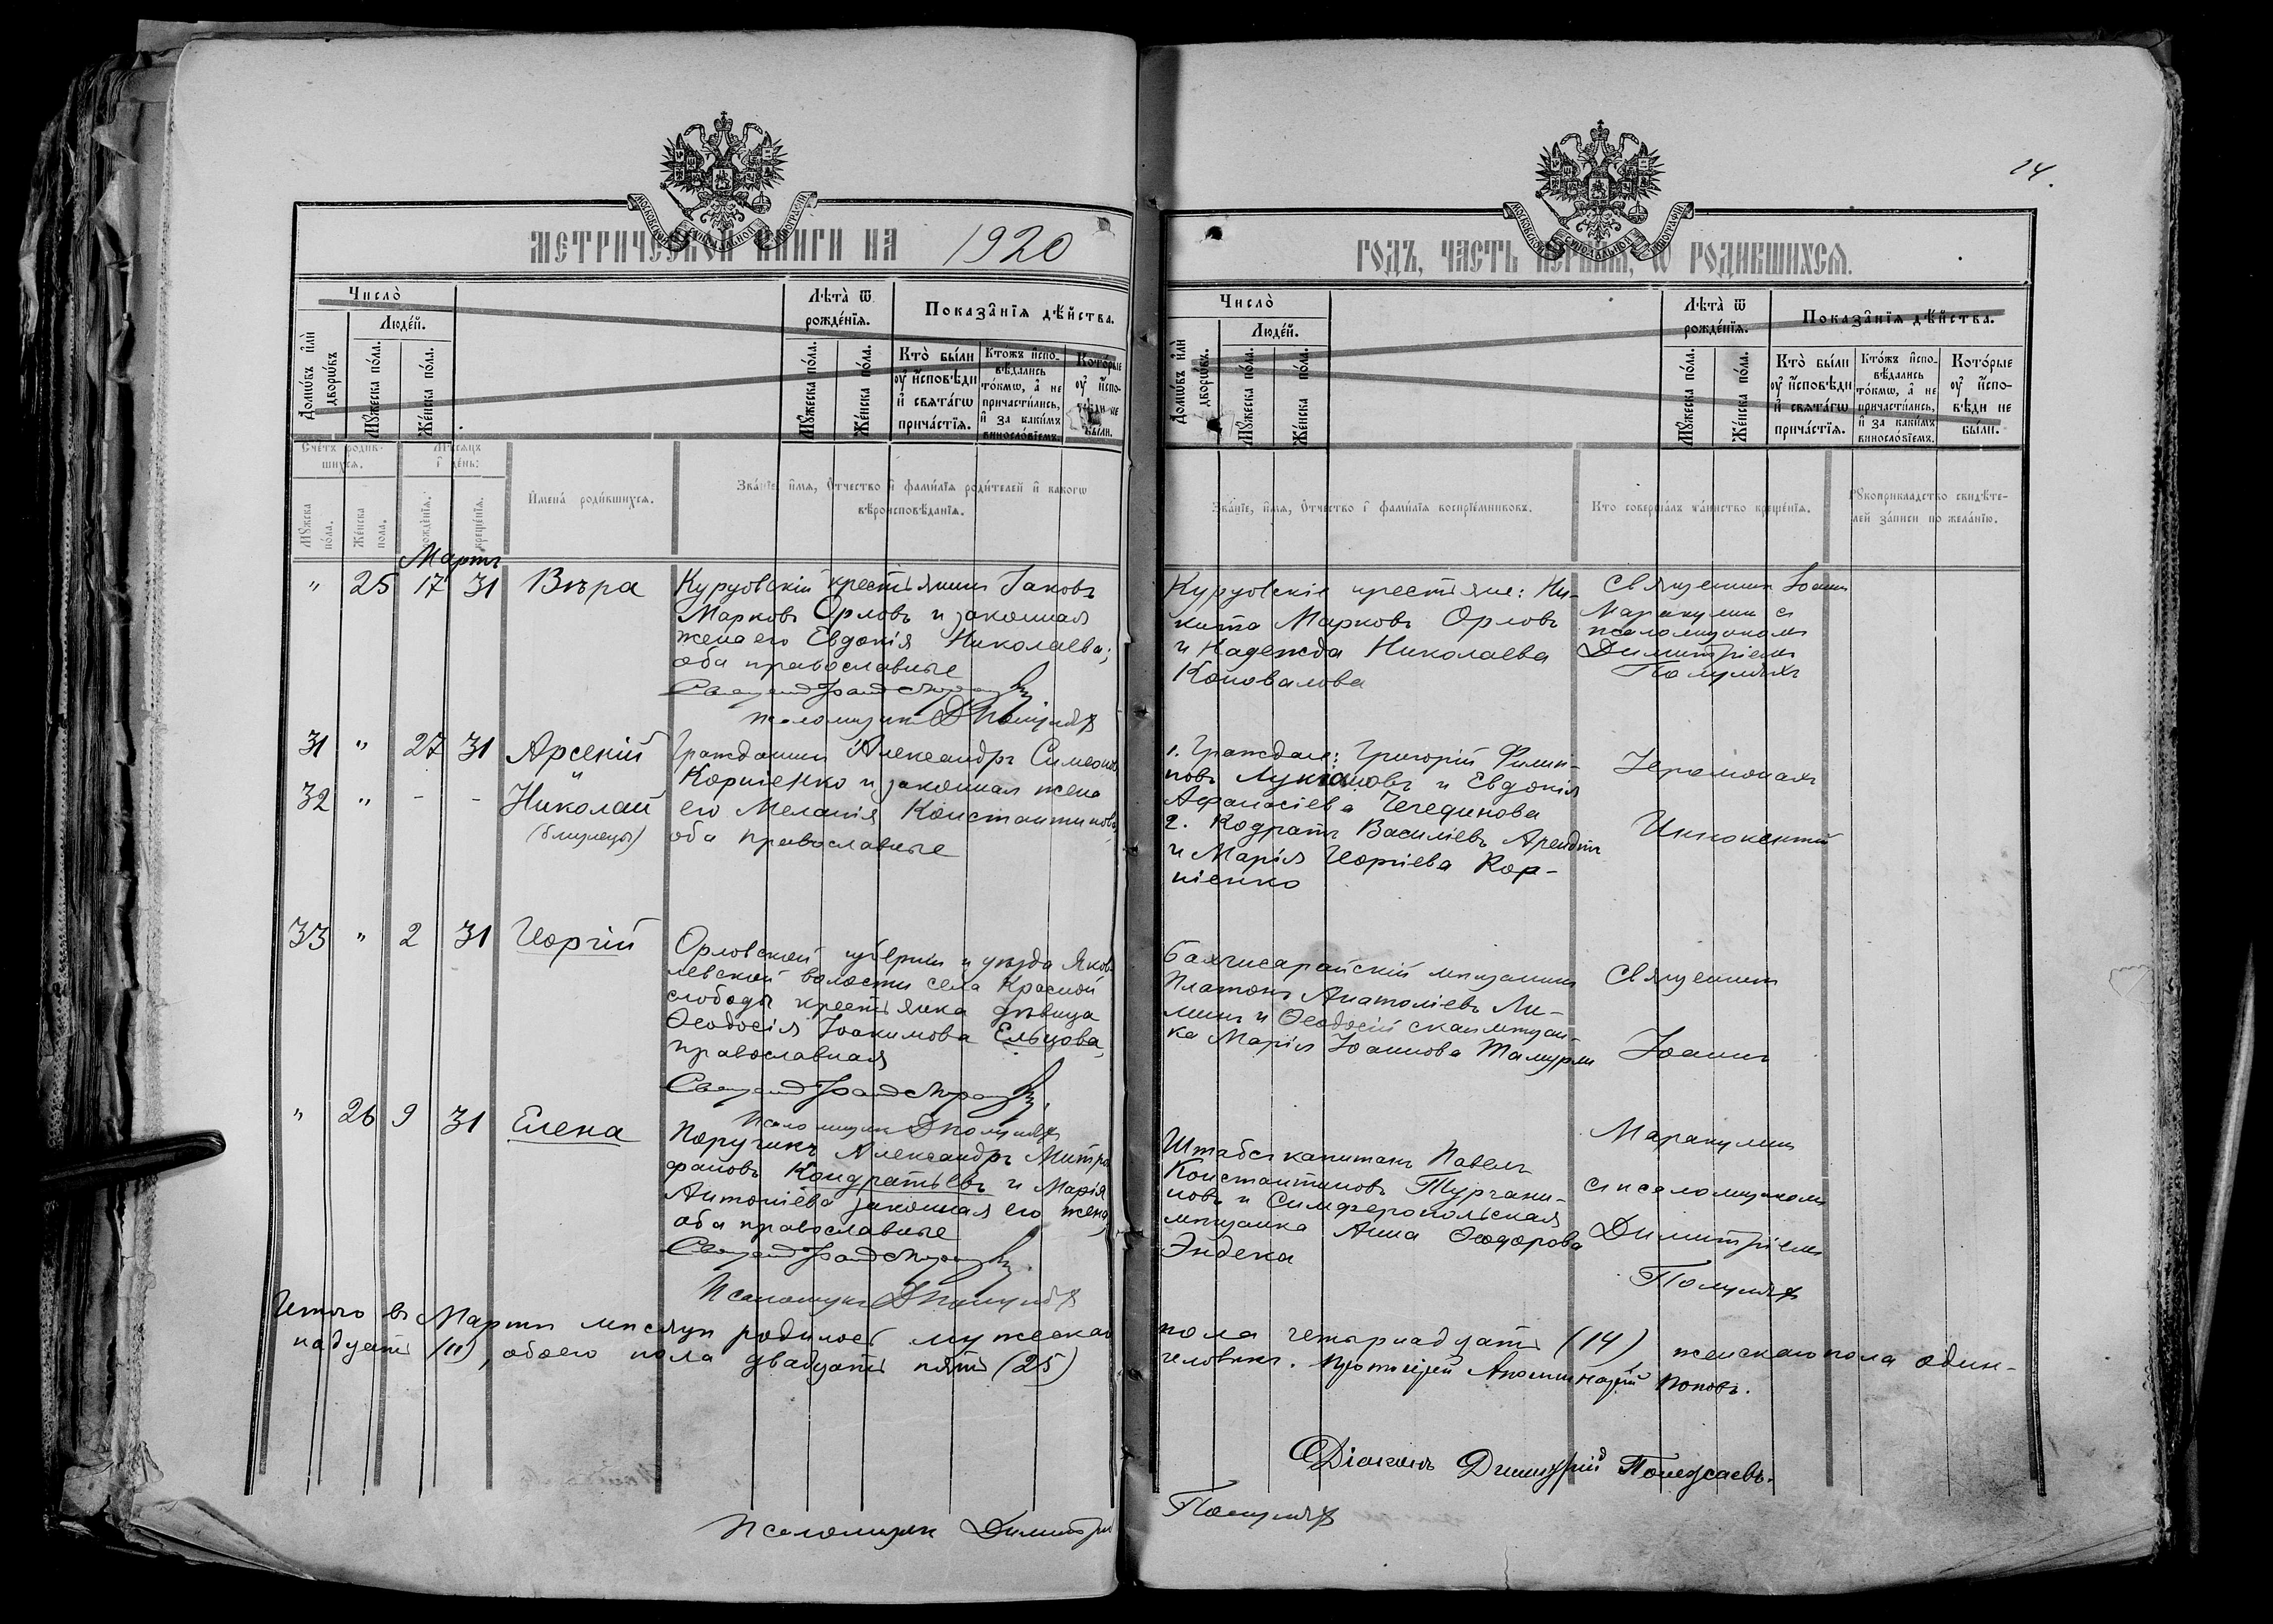 14.
МОСКОВСКОЙ СѴНОДАЛЬНОЙ ТИПОГРАФІИ
МОСКОВСКОЙ СѴНОДАЛЬНОЙ ТИПОГРАФІИ
МЕТРИЧЕСКОЙ КНИГИ НА 1920
ГОДЪ, ЧАСТЬ ПЕРВАЯ, Ѡ РОДИВШИХСЯ.
Число̀
Домѡ́въ и҆лѝ дворѡ́въ
Люде́й.
Мꙋ́жеска по́ла.
Же́нска по́ла.
Лѣта̀ ѿ рожде́нїѧ.
Мꙋ́жеска по́ла.
Же́нска по́ла.
Показа̑нїѧ дѣ́йства.
Кто̀ бы́ли
ᲂу҆ и҆́сповѣди
и҆ свѧта́гѡ
прича́стїѧ.
Кто́жъ и҆спо-
вѣ́дались
то́кмѡ, а҆ не
причасти́лись,
и҆ за каки́мъ
виносло́вїемъ.
Кото́рые
ᲂу҆ и҆́спо-
вѣди не
бы́ли.
Число̀
Домѡ́въ и҆лѝ дворѡ́въ.
Люде́й.
Мꙋ́жеска по́ла.
Же́нска по́ла.
Лѣта̀ ѿ рожде́нїѧ.
Мꙋ́жеска по́ла.
Же́нска по́ла.
Показа̑нїѧ дѣ́йства.
Кто̀ бы́ли
ᲂу҆ и҆́сповѣди
и҆ свѧта́гѡ
прича́стїѧ.
Кто́жъ и҆спо-
вѣ́дались
то́кмѡ, а҆ не
причасти́лись,
и҆ за каки́мъ
виносло́вїемъ.
Кото́рые
ᲂу҆ и҆́спо-
вѣди не
бы́ли.
Сче́тъ роди́в-
шихсѧ.
Мꙋ́жска по́ла.
Же́нска пола.
Мѣ́сѧцъ
и҆ де́нь:
рожде́нїѧ.
креще́нїѧ.
И҆мена̀ роди́вшихсѧ.
Зва́нїе, и҆́мѧ, ѻ҆́тчество и҆ фами́лїѧ роди́телей и҆ какогѡ
вѣроисповѣ́данїѧ.
Зва́нїе, и҆́мѧ, ѻ҆́тчество и҆ фами́лїѧ воспрїе́мниковъ.
Кто соверша́лъ та́инство креще́нїѧ.
Рꙋкоприкладство свидѣте-
лей за́писи по жела́нїю.
Мартъ
" 25 17 31 Вѣра
Курузовскій крестьянинъ Іаковъ
Марковъ Орловъ и законная
жена его Евдокія Николаева;
оба православные
Куруовскіе крестьяне: Ни-
кита Марковъ Орловъ
и Надежда Николаева
Коновалова
Священникъ Іоаннъ
Маракулинъ съ
псаломщикомъ
Димитріемъ
31 " 27 31 Арсеній
и
32 " - - Николай
(близнецы)
Гражданинъ Александръ Симеоновъ
Корніенко и законная жена
его Меланія Константинова,
оба православные
1. Граждане: Григорій Филип-
повъ Лукіановъ и Евдокія
Афанасіева Чередикова
2. Кодратъ Василіевъ Арендтъ
и Марія Георгіева Кор-
ніенко
Іеромонахъ
Иннокентій
33 " 2 31 Георгій
Орловской губерніи и уѣзда Яков-
левской волости села Красной
слободы крестьянка дѣвица
Ѳеодосія Іоакимова Ельцова,
православная
Бахчисарайскій мѣщанинъ
Платонъ Анатоліевъ Ли-
минъ и Ѳеодосійская мѣщан-
ка Марія Іоаннова
Священникъ
Іоаннъ
Маракулинъ
съ псаломщикомъ
Димитріемъ
" 26 9 31 Елена
Поручикъ Александръ Митро-
фановъ Кондратьевъ и Марія
Антоніева законная его жена,
оба православные
Псаломщикъ
Штабсъ капитанъ Павелъ
Константиновъ Турчани-
новъ и Симферопольская
мѣщанка Анна Ѳеодорова
Эндека
Итого въ Мартѣ мѣсяцѣ родилось мужескаго пола четырнадцать (14) женскаго пола один-
надцать (11), обоего пола двадцать пять (25) человѣкъ. Протоіерей Аполлинарій Поповъ.
Діаконъ Димитрій Полежаевъ.
Псаломщикъ Димитрій